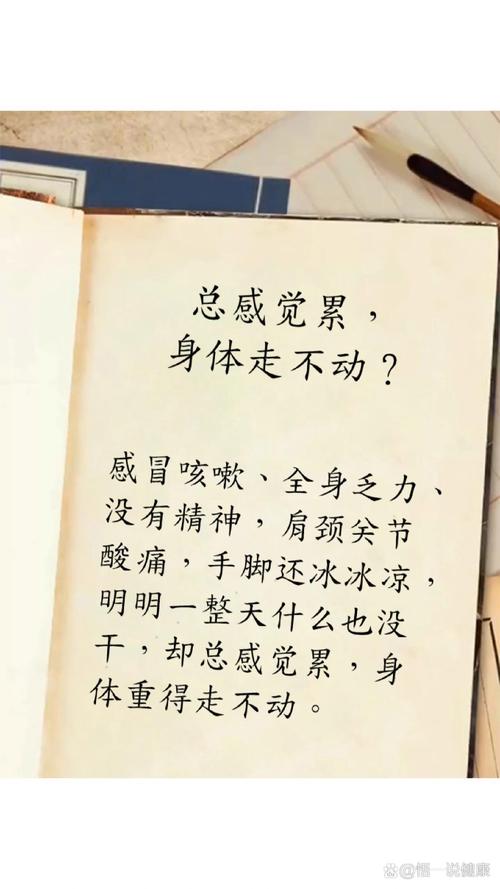 总感觉累，
身体走不动？
感冒咳嗽、全身乏力、
没有精神，肩颈关节
酸痛，手脚还冰冰凉，
明明一整天什么也没
干，却总感觉累，身
体重得走不动。
@悟一说健康